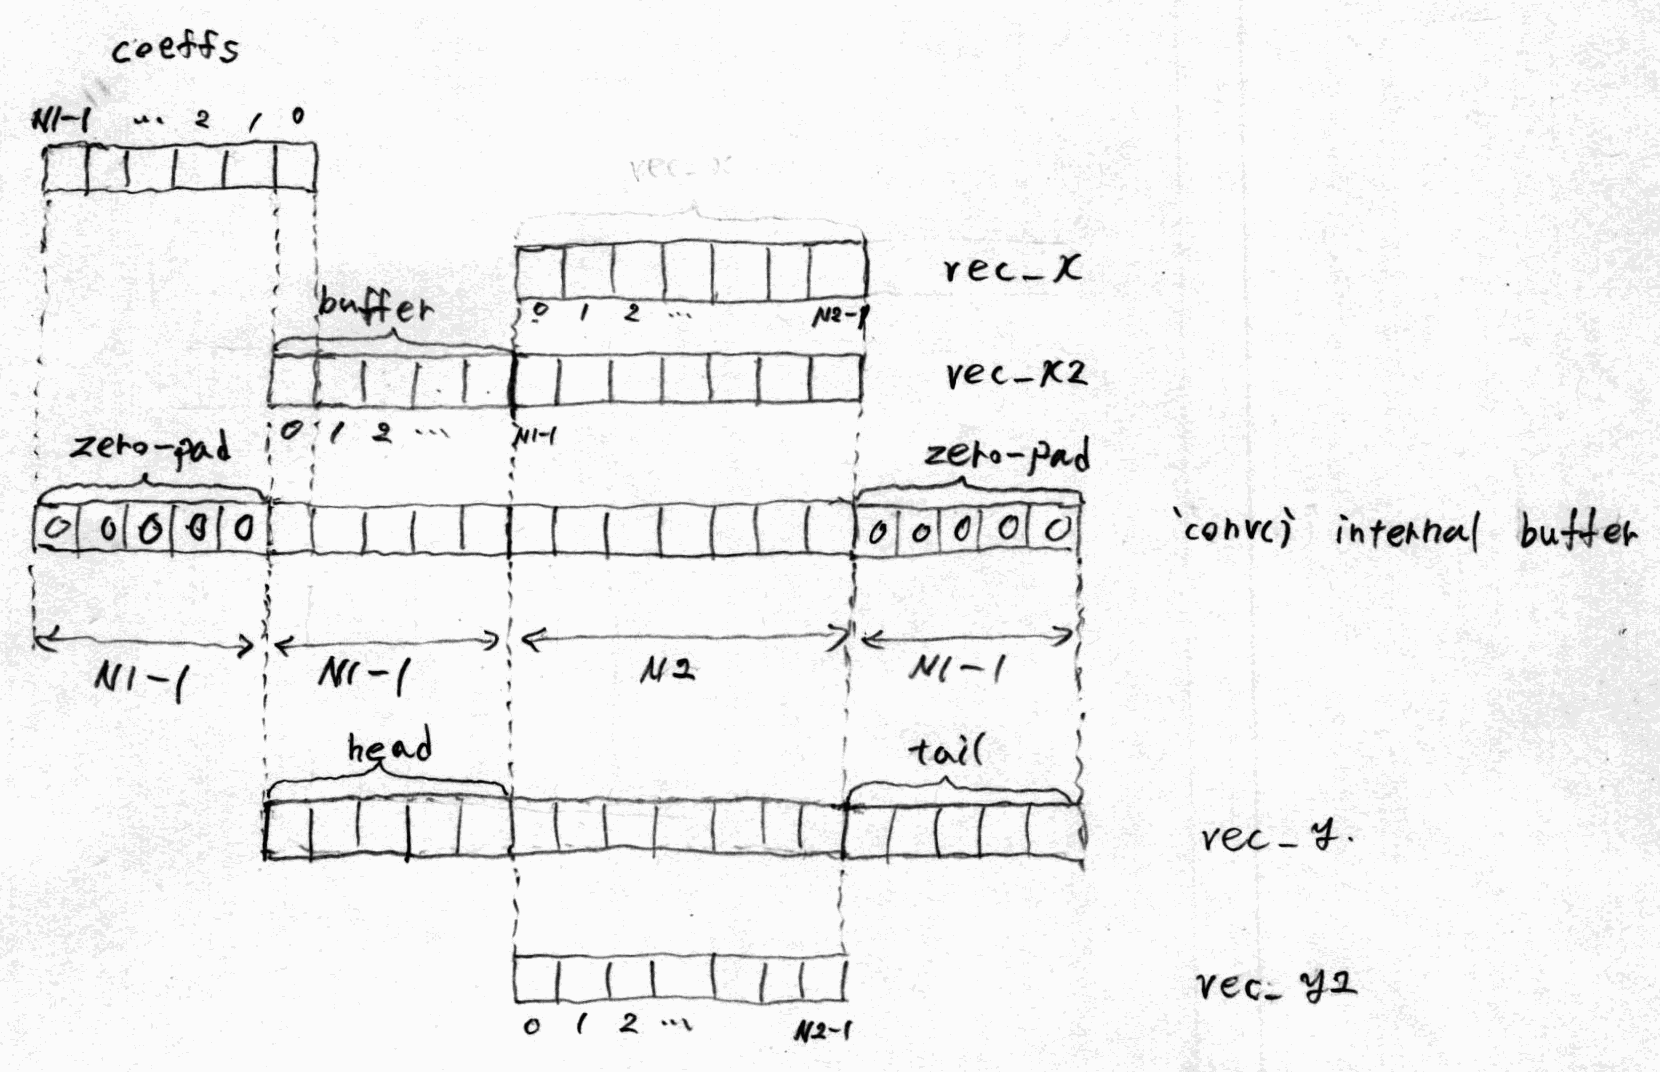 coeffs
N1-1 ... 2 1 0
vec_x
vec_x
buffer
0 1 2 ... N2-1
vec_x2
0 1 2 ... N1-1
zero-pad
zero-pad
0 0 0 0 0
0 0 0 0 0
`conv()` internal buffer
N1-1
N1-1
N2
N1-1
head
tail
vec_y.
vec_y2
0 1 2 ... N2-1